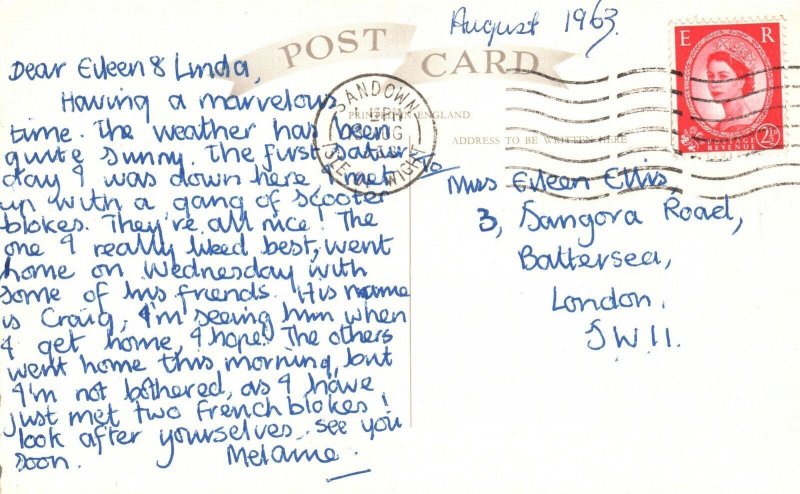 August 1963.
POST CARD
PRINTED IN ENGLAND
ADDRESS TO BE WRITTEN HERE
SANDOWN
ISLE OF WIGHT
E R
POSTAGE
REVENUE
2½D
Dear Eileen & Linda,
Having a marvelous
time. The weather has been
quite sunny. The first satur
day I was down here, I met
up with a gang of scooter
blokes. They're all nice! The
one I really liked best, went
home on Wednesday with
some of his friends. His name
is Craig, I'm seeing him when
I get home, I hope! The others
went home this morning, but
I'm not bothered, as I have
just met two French blokes!
look after yourselves. see you
soon. Melanie
To
Miss Eileen Ellis,
3, Sangora Road,
Battersea,
London.
SW11.